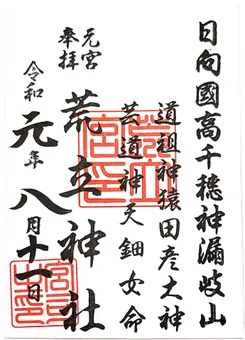 日向國高千穂神漏岐山
道祖神猿田彦大神
芸道神天鈿女命
元宮
奉拝
荒立神社
令和元年八月十一日